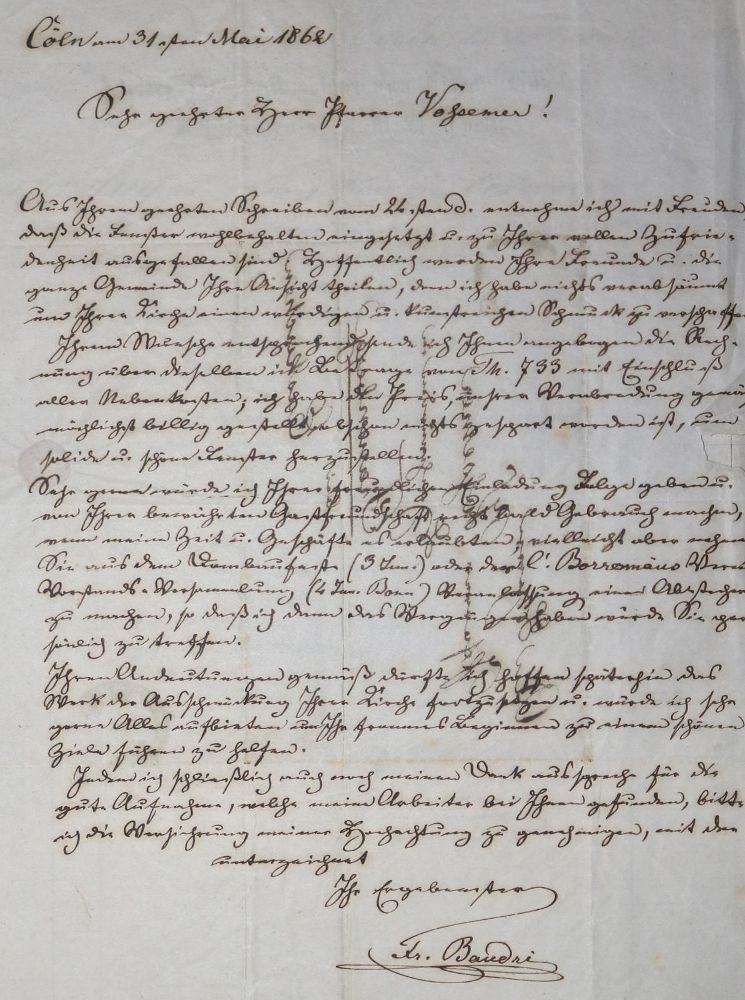 Cöln am 31sten Mai 1862
Sehr geehrter Herr Pfarrer Vohsemer!
Aus Ihrem geehrten Schreiben vom 24sten d. entnehme ich mit Freuden
daß die Fenster wohlbehalten eingesetzt u. zu Ihrer vollen Zufrie-
denheit ausgefallen sind. Hoffentlich werden Ihre Freunde u. die
ganze Gemeinde Ihre Ansicht theilen, denn ich habe nichts verabsäumt
um Ihrer Kirche einen würdigen u. kunstreichen Schmuck zu verschaffen
Ihrem Wunsche entsprechend sende ich Ihnen angebogen die Rech-
nung über dieselben im Betrage von Th. 733 mit Einschluß
aller Nebenkosten; ich habe den Preis, unserer Verabredung gemäß
möglichst billig gestellt, obschon nichts gespart worden ist, um
solide u. schöne Fenster herzustellen.
Sehr gerne würde ich Ihrer freundlichen Einladung Folge geben u.
von Ihrer bewährten Gastfreundschaft recht bald Gebrauch machen,
wenn meine Zeit u. Geschäfte es erlaubten, vielleicht aber nehmen
Sie aus dem Dombaufeste (3 Jun.) oder der C. Borromäus Verei
Vorstands-Versammlung (4 Jun. Bonn) Veranlassung einen Abstecher
zu machen, so daß ich dann das Vergnügen haben würde Sie per
sönlich zu treffen.
Ihren Andeutungen gemäß dürfte ich hoffen späterhin das
Werk der Ausschmückung Ihrer Kirche fortzusetzen u. würde ich sehr
gerne Alles aufbieten um Ihr frommes Beginnen zu einem schönen
Ziele führen zu helfen.
Indem ich schließlich auch noch meinen Dank ausspreche für die
gute Aufnahme, welche meine Arbeiter bei Ihnen gefunden, bitte
ich die Versicherung meiner Hochachtung zu genehmigen, mit der
unterzeichnet
Ihr Ergebenster
Fr. Baudri